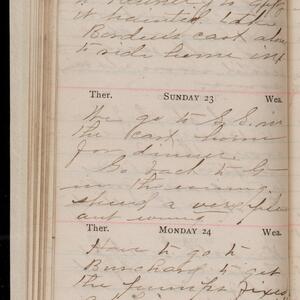 it painted. Later
Borden's cart al
to ride home in
Ther. SUNDAY 23 Wea.
We go to S. S. in
the cart home
for dinner.
Go back to G
in the evening.
spend a very ple
ant evening.
Ther. MONDAY 24 Wea.
Have to go to
Burchard to get
the pump fixed